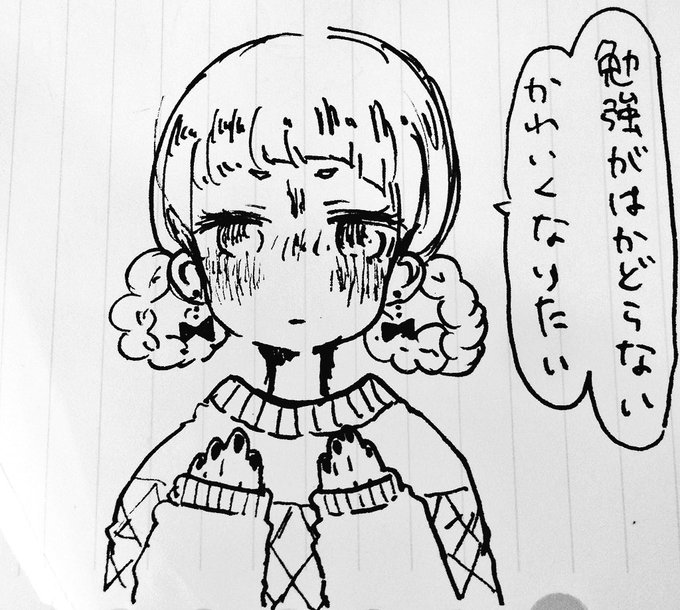 勉強がはかどらない
かわいくなりたい